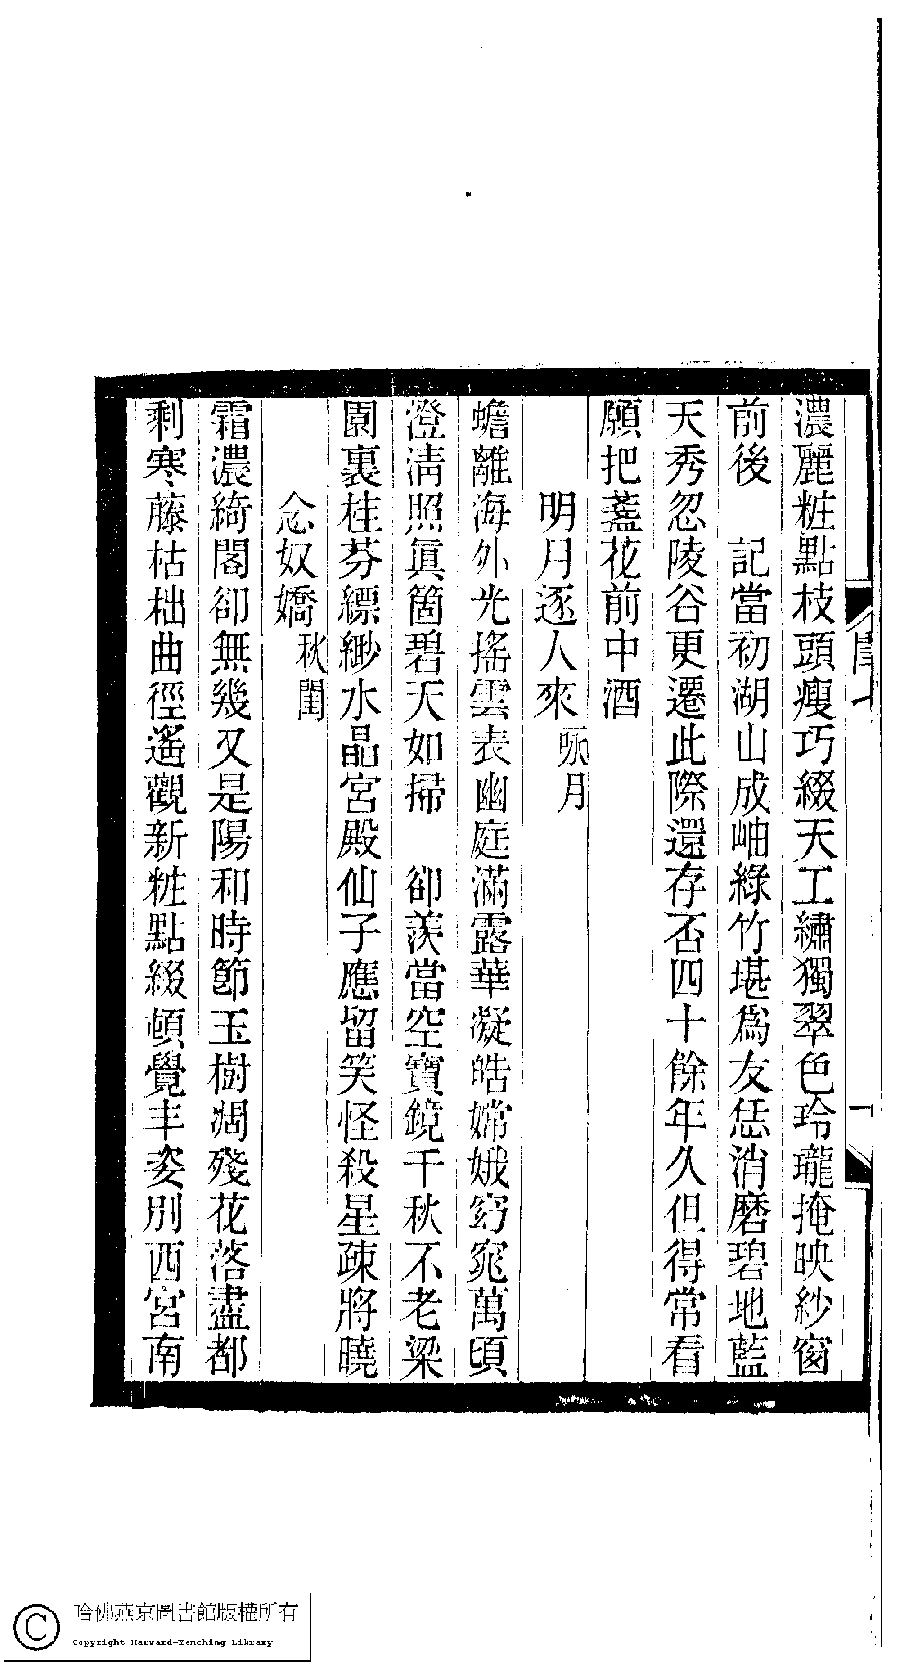 濃麗粧點枝頭瘦巧綴天工繡獨翠色玲瓏掩映紗窗
前後　記當初湖山成岫綠竹堪爲友恁消磨碧地藍
天秀忽陵谷更遷此際還存否四十餘年久但得常看
願把盞花前中酒
明月逐人來　詠月
蟾離海外光搖雲表幽庭滿露華凝皓嫦娥窈窕萬頃
澄清照眞箇碧天如掃　卻羨當空寶鏡千秋不老梁
園裏桂芬縹緲水晶宮殿仙子應留笑怪殺星疎將曉
念奴嬌　秋閨
霜濃綺閣卻無幾又是陽和時節玉樹凋殘花落盡都
剩寒藤枯柮曲徑遙觀新粧點綴頓覺丰姿別西宮南
哈佛燕京圖書館版權所有
Copyright Harvard-Yenching Library